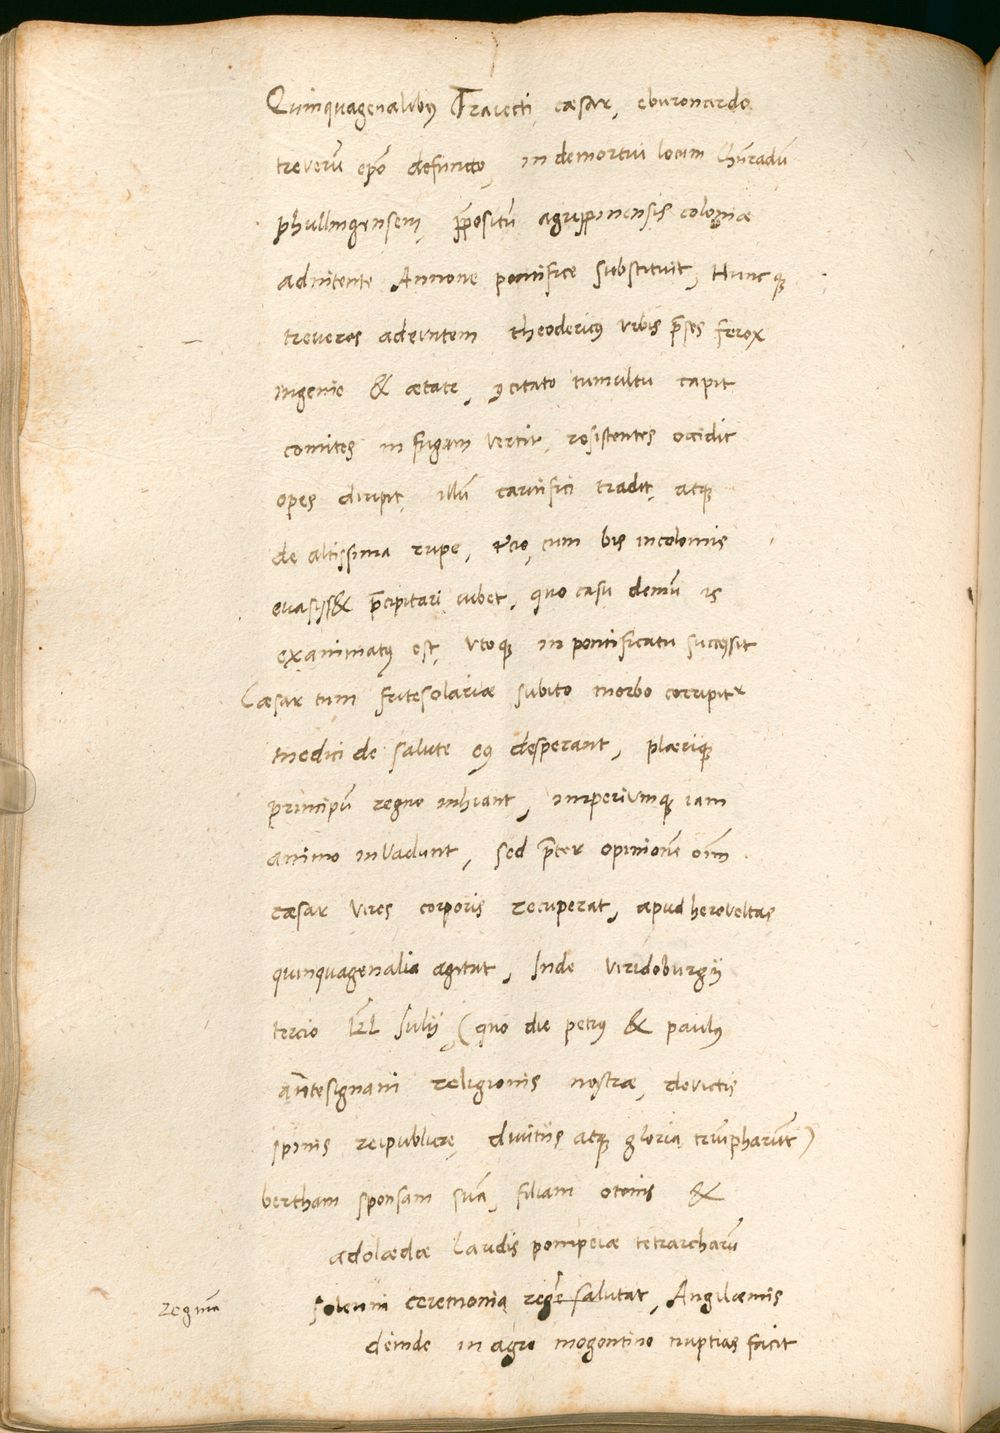 Quinquagenalibꝰ Traiecti, cæsar, eburonardo
treverū epō defuncto, in demortui locum Chūradū
phullingensem, ꝓpositū agrippinensis coloniæ
adnitente Annone pontifice substituit, Huncqꝫ
treveros adeuntem theodericꝰ urbis p̄ses ferox
ingenio & ætate, ꝯcitato tumultu capit
comites in fugam vertit, resistentes occidit
opes diripit, illū carnifici tradit, atqꝫ
de altissima rupe, cum bis incolomis
euasiss& p̄cipitari iubet, quo casu demū is
exanimatꝰ est, vtoqꝫ in pontificatu succęsit
Cæsar tum fritesolariæ subito morbo corripitr
medici de salute eiꝰ desperant, plæriqꝫ
principū regno inhiant, imperiumqꝫ iam
animo invadunt, sed p̄ter opinionē oīm
cæsar vires corporis recuperat, apud heroveltas
quinquagenalia agitat, Inde viridoburgij
tercio kl Julij, (quo die petrꝰ & paulꝰ
antesignani religionis nostræ, devictis
spinis reipublicæ, divitiis atqꝫ gloria triūpharūt)
bertham sponsam suā, filiam otonis &
adolædæ laudis pompeiæ tetrarcharū
solenni ceremonia regē salutat, Angilæmis
reginā
deinde in agro mogontino nuptias facit